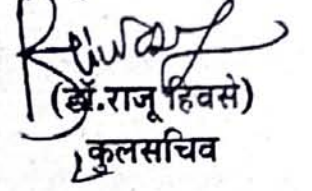 (डॉ.राजू हिवसे)
कुलसचिव